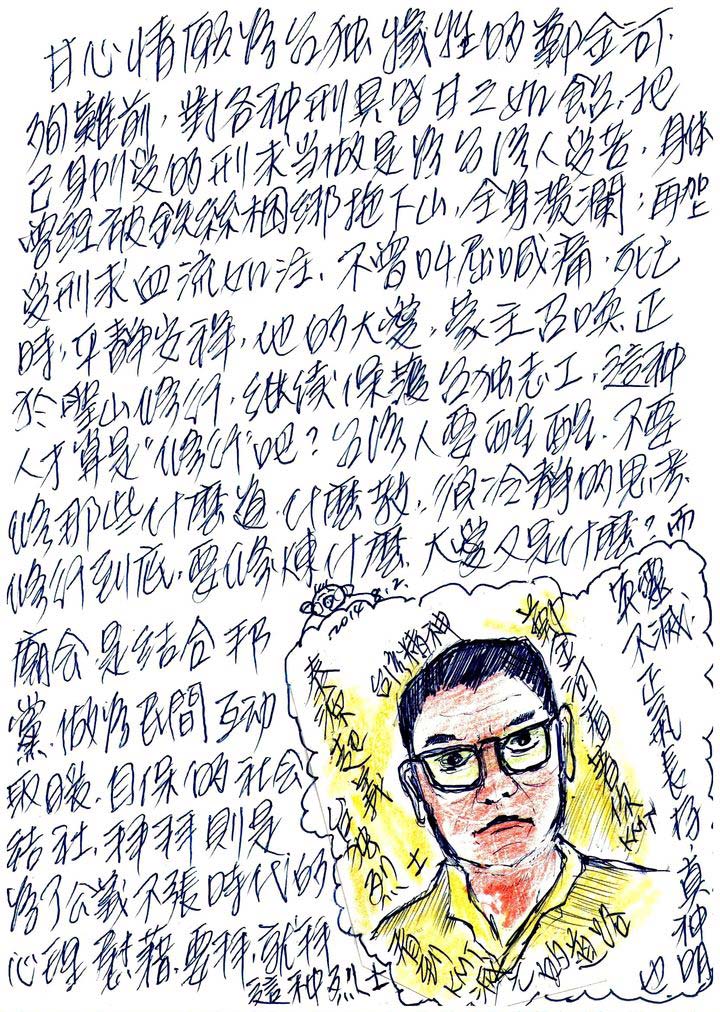 甘心情願為台独犧牲的鄭金河.
殉難前，對各种刑具皆甘之如飴，把
己身所受的刑求当做是為台湾人受苦，身体
曾经被鉄絲捆绑拖下山，全身潰瀾；再加上
受刑求血流如注，不曾叫屈喊痛．死亡
時，平靜安祥，他的大愛，蒙主召唤，正
於聖山修行，继续保護台独志工，這种
人才算是“修行”吧？台湾人要醒醒，不要
修那些什麼道．什麼教，須冷靜的思考．
修行到底．要修煉什麼．大愛又是什麼？而
廟会是结合邦
黨．做為民間互动
取暖．自保的社会
结社，拜拜則是
為了公義不張時代的
心理慰藉．要拜，就拜
這种烈士
2014.8.2.
台湾精神
鄭金河看著你
KMT
泰源起義
台独烈士
看到KMT
英靈
不滅，正氣長存，真神明也